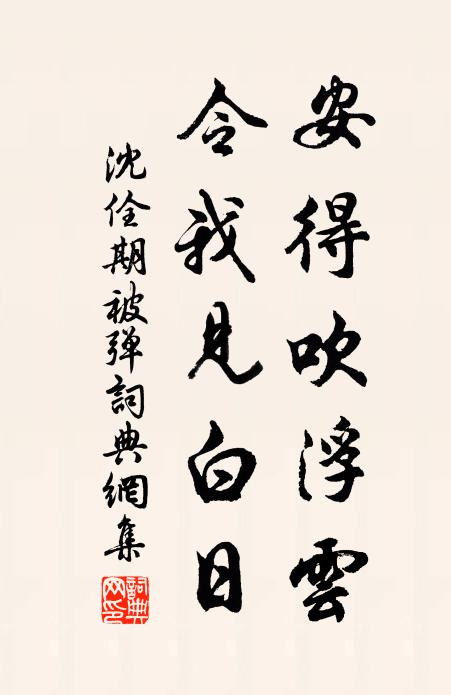 安得吹浮雲
令我見白日
沈佺期被弹詞典網集
詞典网印